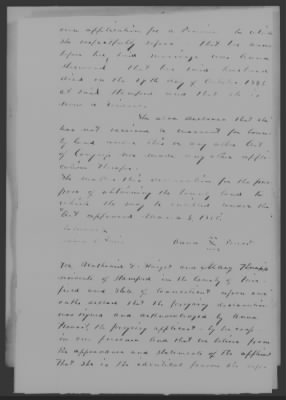 own application for a Pension to which
she respectfully refers that her name
before her said marriage was Anna
that her said husband
died on the 17th day of October 18
at said Stamford and that she is
now a widow
She also declares that she
has not received a warrant for boun-
ty land under this or any other Act
of Congress nor made any other appli-
cation therefor
She makes this declaration for the pur-
pose of obtaining the bounty land to
which she may be entitled under the
Act approved March 3, 1855
Anna
We Nathaniel and Mary
residents of Stamford in the County of Fair-
field and State of Connecticut upon our
oaths declare that the foregoing declaration
was signed and acknowledged by Anna
the foregoing applicant by her
in our presence and that we believe from
the appearance and statements of the applicant
that she is the identical person she repre-